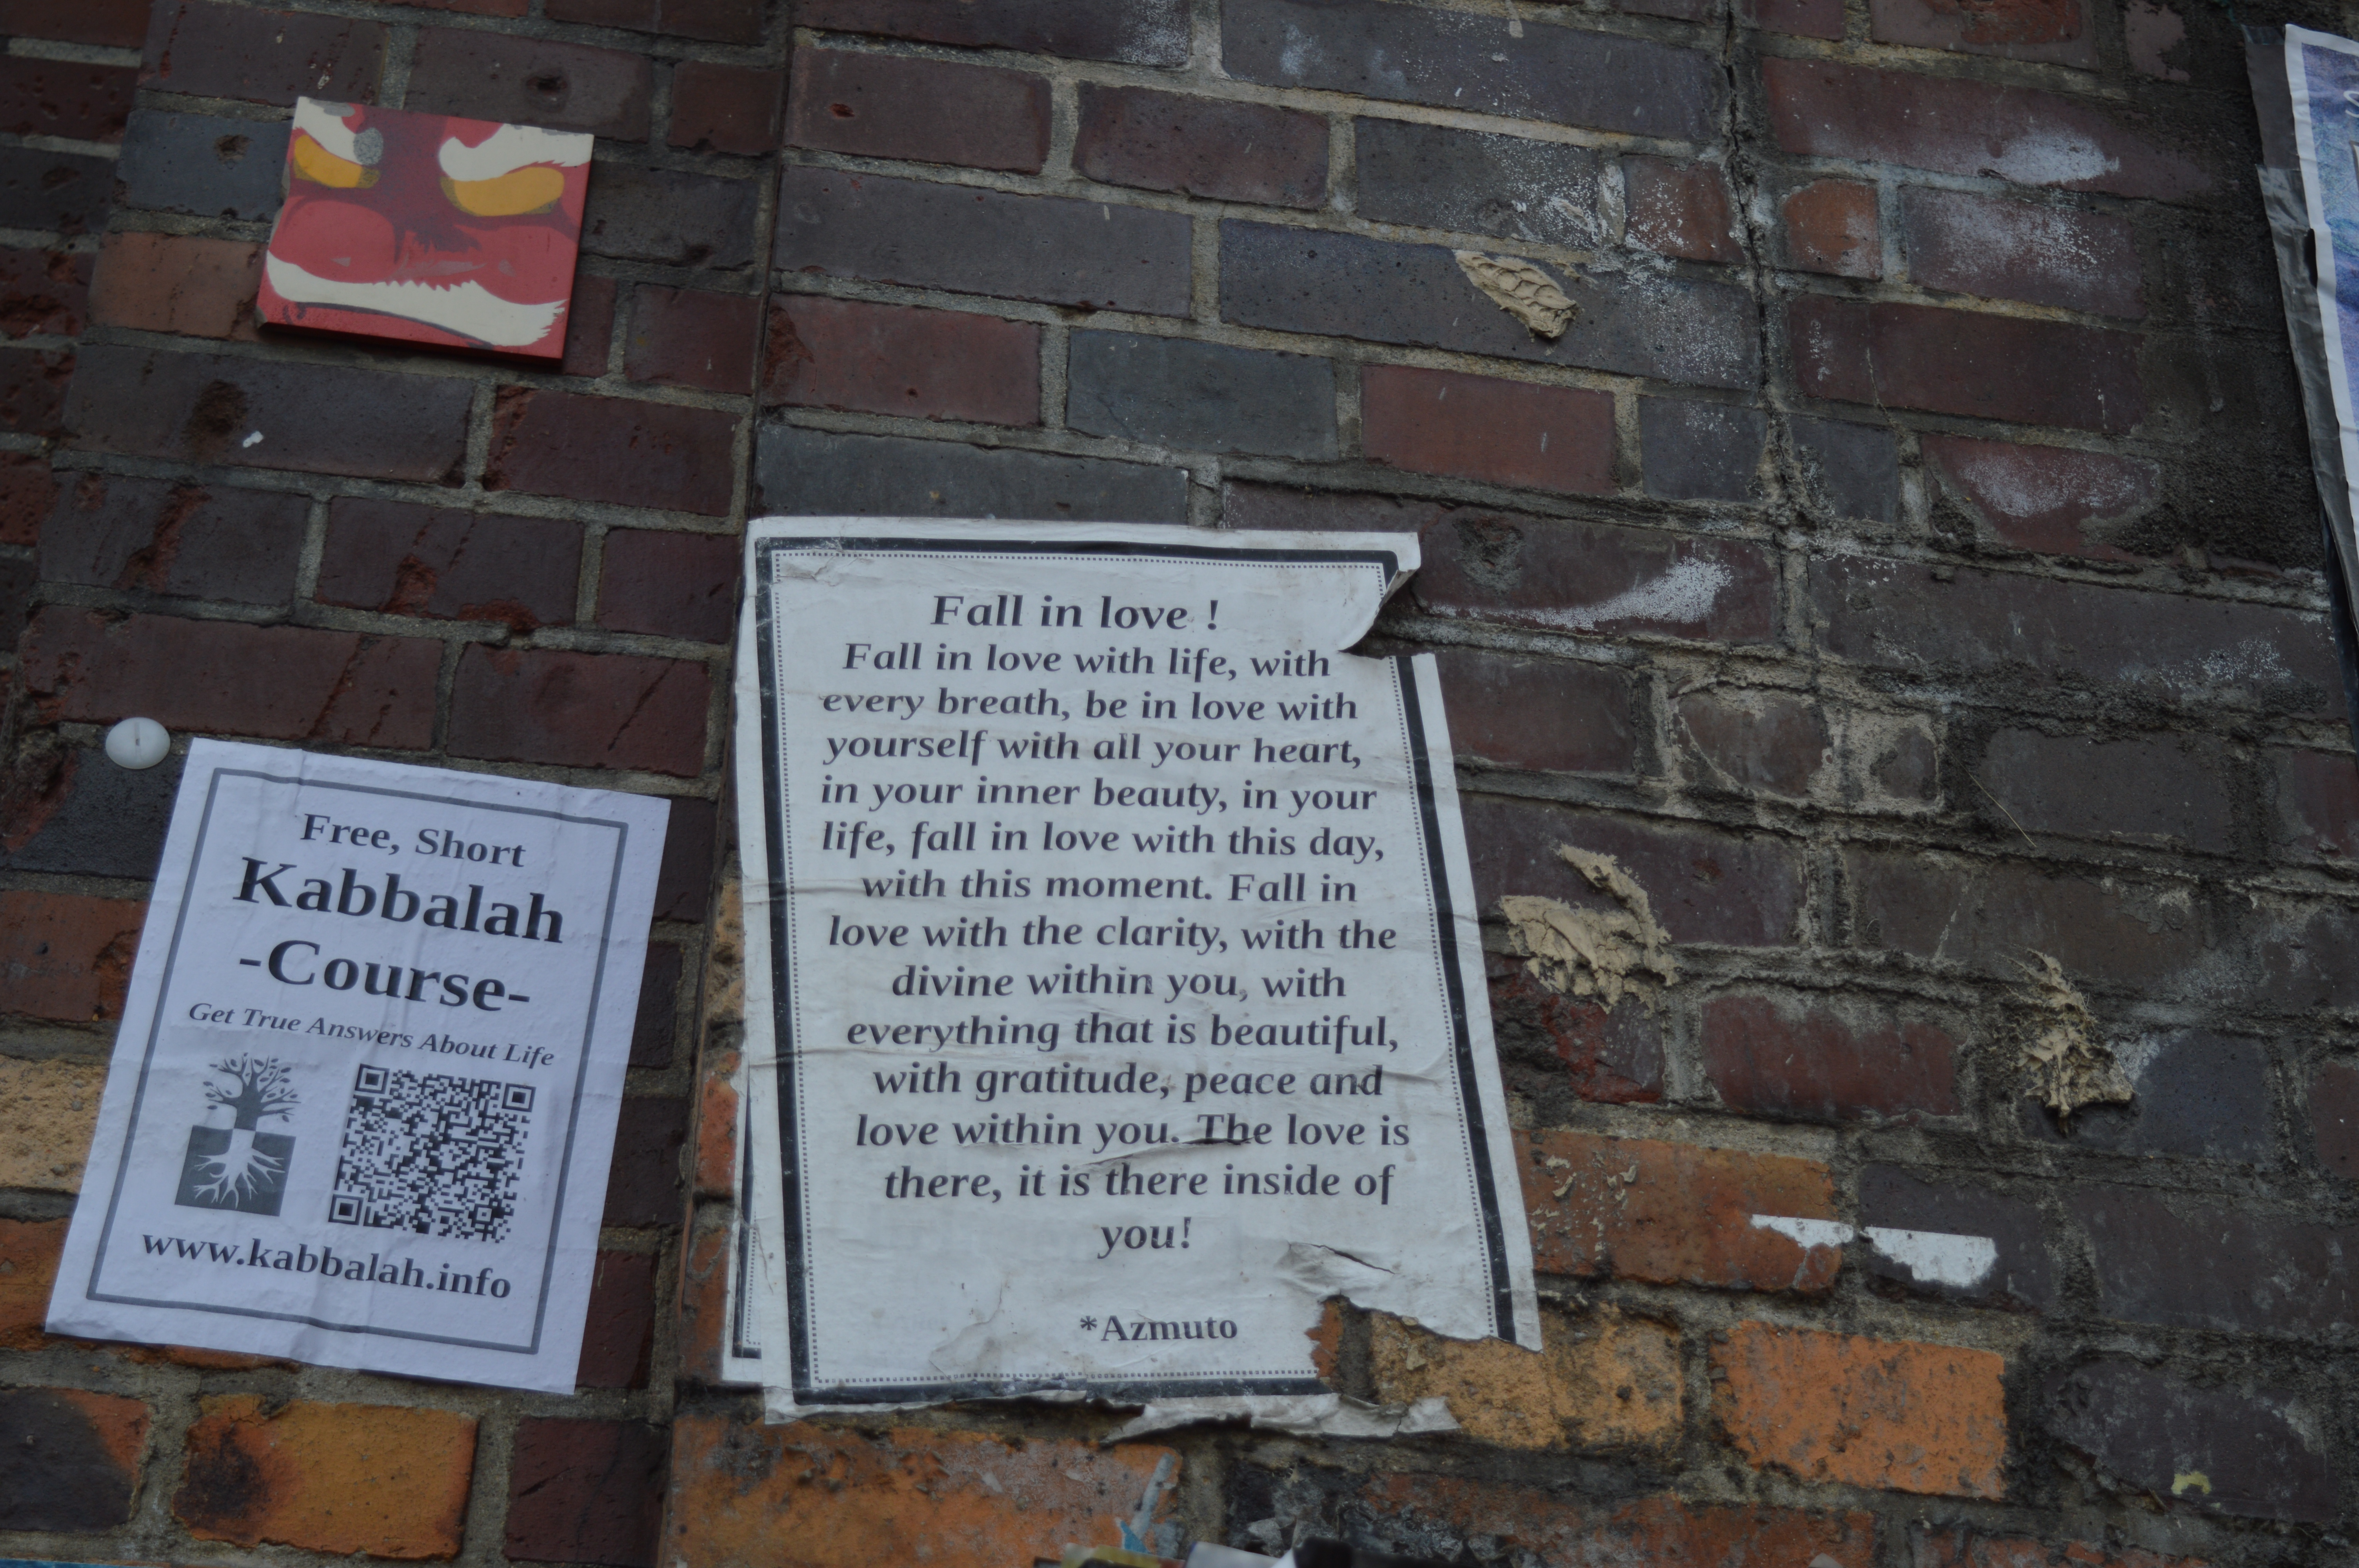 Fall in love !
Fall in love with life, with
every breath, be in love with
yourself with all your heart,
in your inner beauty, in your
life, fall in love with this day,
with this moment. Fall in
love with the clarity, with the
divine within you, with
everything that is beautiful,
with gratitude, peace and
love within you. The love is
there, it is there inside of
you!
*Azmuto
Free, Short
Kabbalah
-Course-
Get True Answers About Life
www.kabbalah.info